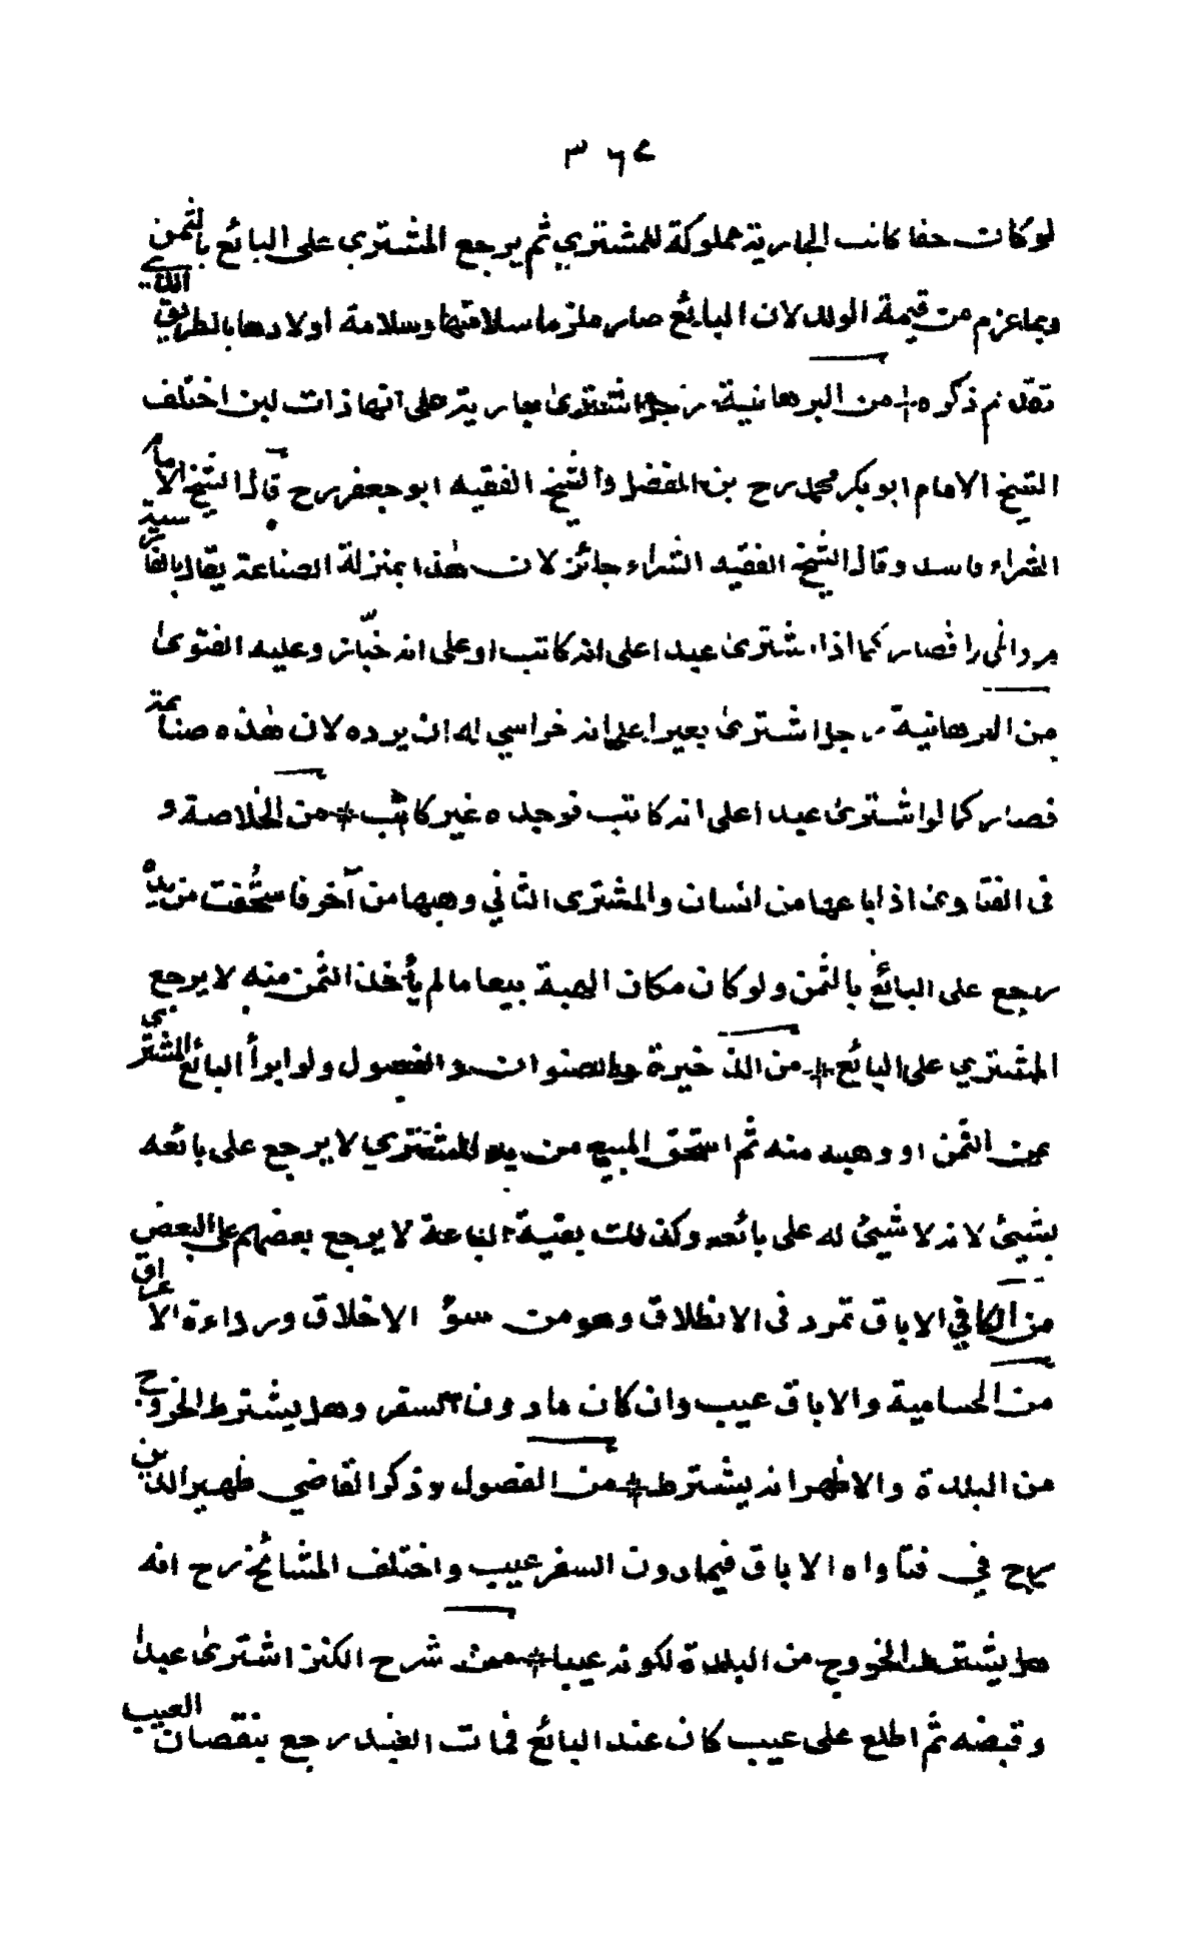 ٣٦٧
لو كان حقا كانت الجارية مملوكة للمشتري ثم يرجع المشتري على البائع بالثمن
وبما غرم من قيمة الولد لان البائع صار ملتزما سلامتها وسلامة اولادها بالطريق الذي
تقدم ذكره من البرهانية رجل اشترى جارية على انها ذات لبن اختلف
الشيخ الامام ابو بكر محمد رح بن الفضل والشيخ الفقيه ابو جعفر رح قال الشيخ الامام
الشراء فاسد وقال الشيخ الفقيه الشراء جائز لان هذا بمنزلة الصناعة يقال بالفارسية
كما اذا اشترى عبدا على انه كاتب او على انه خبّاز وعليه الفتوى
من البرهانية رجل اشترى بعيرا على انه خراسي له ان يرده لان هذه صناعة
فصار كما لو اشترى عبدا على انه كاتب فوجده غير كاتب من الخلاصة و
فى الفتاوى اذا باعها من انسان والمشترى الثاني وهبها من آخر فاستحقت من يده
رجع على البائع بالثمن ولو كان مكان الهبة بيعا ما لم يأخذ الثمن منه لا يرجع
المشتري على البائع من الذخيرة والصنوان والفصول ولو ابرأ البائع المشتري
عن الثمن او وهبه منه ثم استحق المبيع من يد المشتري لا يرجع على بائعه
بشيئ لانه لا شيئ له على بائعه وكذلك بقية الباعة لا يرجع بعضهم على البعض
من الكافي الاباق تمرد فى الانطلاق وهو من سوء الاخلاق ورداءة الاعراق
من الحسامية والاباق عيب وان كان ما دون السفر وهل يشترط الخروج
من البلدة والاظهر انه يشترط من الفصول وذكر القاضي ظهير الدين
رح في فتاواه الاباق فيما دون السفر عيب واختلف المشائخ رح انه
هل يشترط الخروج من البلدة لكونه عيبا من شرح الكنز اشترى عبدا
وقبضه ثم اطلع على عيب كان عند البائع فمات العبد رجع بنقصان العيب